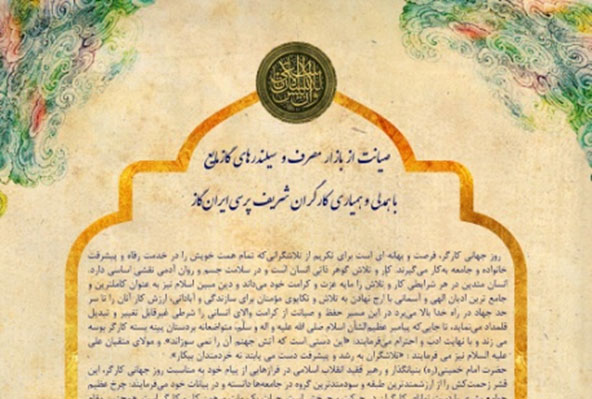 صیانت از بازار مصرف و سیلندرهای گازمایع
با همدلی و همیاری کارگران شریف پرسی ایران‌گاز
روز جهانی کارگر، فرصت و بهانه ای است برای تکریم از تلاشگرانی‌که تمام همت خویش را در خدمت رفاه و پیشرفت
خانواده و جامعه به‌کار می‌گیرند. کار و تلاش گوهر ذاتی انسان است و در سلامت جسم و روان آدمی نقشی اساسی دارد.
انسان متدین در هر شرایطی کار و تلاش را مایه عزت و کرامت خود می‌داند و دین مبین اسلام نیز به عنوان کاملترین و
جامع ترین ادیان الهی و آسمانی با ارج نهادن به تلاش و تکاپوی مؤمنان برای سازندگی و آبادانی، ارزش کار آنان را تا سر
حد جهاد در راه خدا بالا می‌برد در این مسیر حفظ و صیانت از کرامت والای انسانی را شرطی غیرقابل تغییر و تبدیل
قلمداد می‌نماید، تا جایی‌که پیامبر عظیم‌الشأن اسلام صلی الله علیه و اله و سلّم، متواضعانه بردستان پینه بسته کارگر بوسه
می زند و با نهایت ادب و احترام می‌فرمایند: «این دستی است که آتش جهنم آن را نمی سوزاند». و مولای متقیان علی
علیه السلام نیز می فرمایند : «تلاشگران به رشد و پیشرفت دست می یابند نه خردمندان بیکار».
حضرت امام خمینی(ره) بنیانگذار و رهبر فقید انقلاب اسلامی در فرازهایی از پیام خود به مناسبت روز جهانی کارگر، این
قشر زحمت‌کش را از ارزشمندترین طبقه و سودمندترین گروه در جامعه‌ها دانسته و در بیانات خود می‌فرمایند: چرخ عظیم